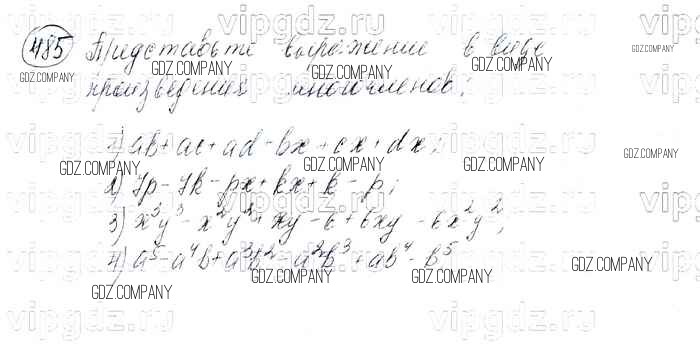 485 Представьте выражение в виде
произведения многочленов:
1) ab + ac + ad + bx + cx + dx;
2) 7p - 7k - px + kx + k - p;
3) x³y³ - x²y² + xy - 6 + 6xy - 6x²y²;
4) a⁵ - a⁴b + a³b² - a²b³ + ab⁴ - b⁵
GDZ.COMPANY
vipgdz.ru